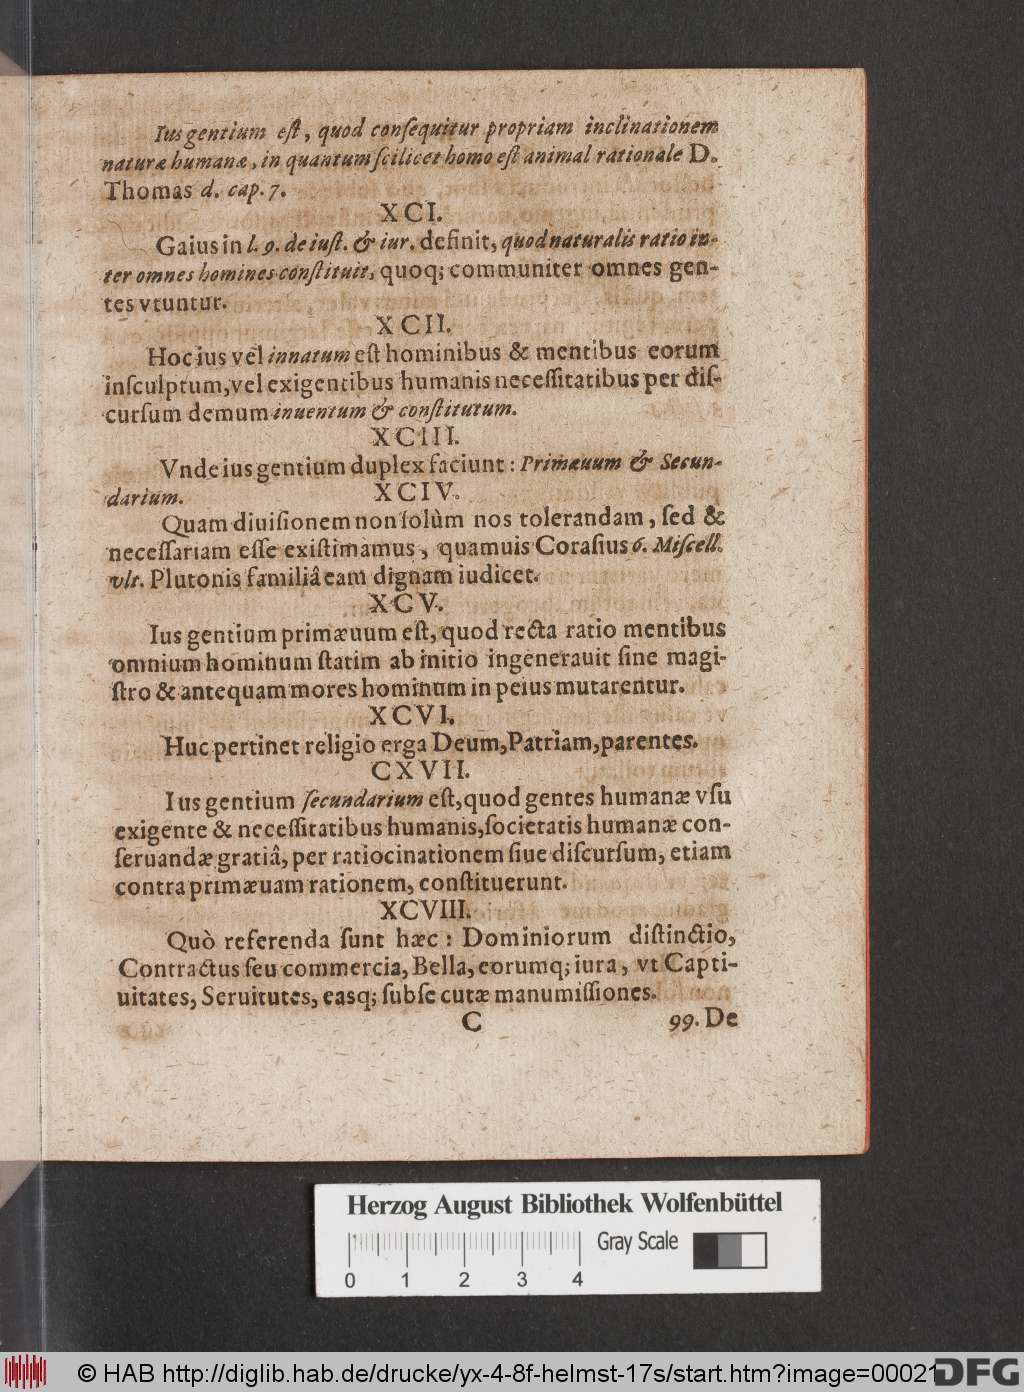 Ius gentium eſt, quod conſequitur propriam inclinationem
naturæ humanæ, in quantum ſcilicet homo eſt animal rationale D.
Thomas d. cap. 7.
XCI.
Gaius in l. 9. de iuſt. & iur. definit, quod naturalis ratio in-
ter omnes homines conſtituit, quoq; communiter omnes gen-
tes vtuntur.
XCII.
Hoc ius vel innatum eſt hominibus & mentibus eorum
inſculptum, vel exigentibus humanis neceſſitatibus per diſ-
curſum demum inuentum & conſtitutum.
XCIII.
Vnde ius gentium duplex faciunt: Primæuum & Secun-
darium.
XCIV.
Quam diuiſionem non ſolùm nos tolerandam, ſed &
neceſſariam eſſe exiſtimamus, quamuis Coraſius 6. Miſcell.
vlt. Plutonis familiâ eam dignam iudicet.
XCV.
Ius gentium primæuum eſt, quod recta ratio mentibus
omnium hominum ſtatim ab initio ingenerauit ſine magi-
ſtro & antequam mores hominum in peius mutarentur.
XCVI.
Huc pertinet religio erga Deum, Patriam, parentes.
CXVII.
Ius gentium ſecundarium eſt, quod gentes humanæ vſu
exigente & neceſſitatibus humanis, ſocietatis humanæ con-
ſeruandæ gratiâ, per ratiocinationem ſiue diſcurſum, etiam
contra primæuam rationem, conſtituerunt.
XCVIII.
Quò referenda ſunt hæc: Dominiorum diſtinctio,
Contractus ſeu commercia, Bella, eorumq; iura, vt Capti-
uitates, Seruitutes, easq; ſubſecutæ manumiſſiones.
C 99. De
Herzog August Bibliothek Wolfenbüttel
Gray Scale
0 1 2 3 4
© HAB http://diglib.hab.de/drucke/yx-4-8f-helmst-17s/start.htm?image=00021
DFG